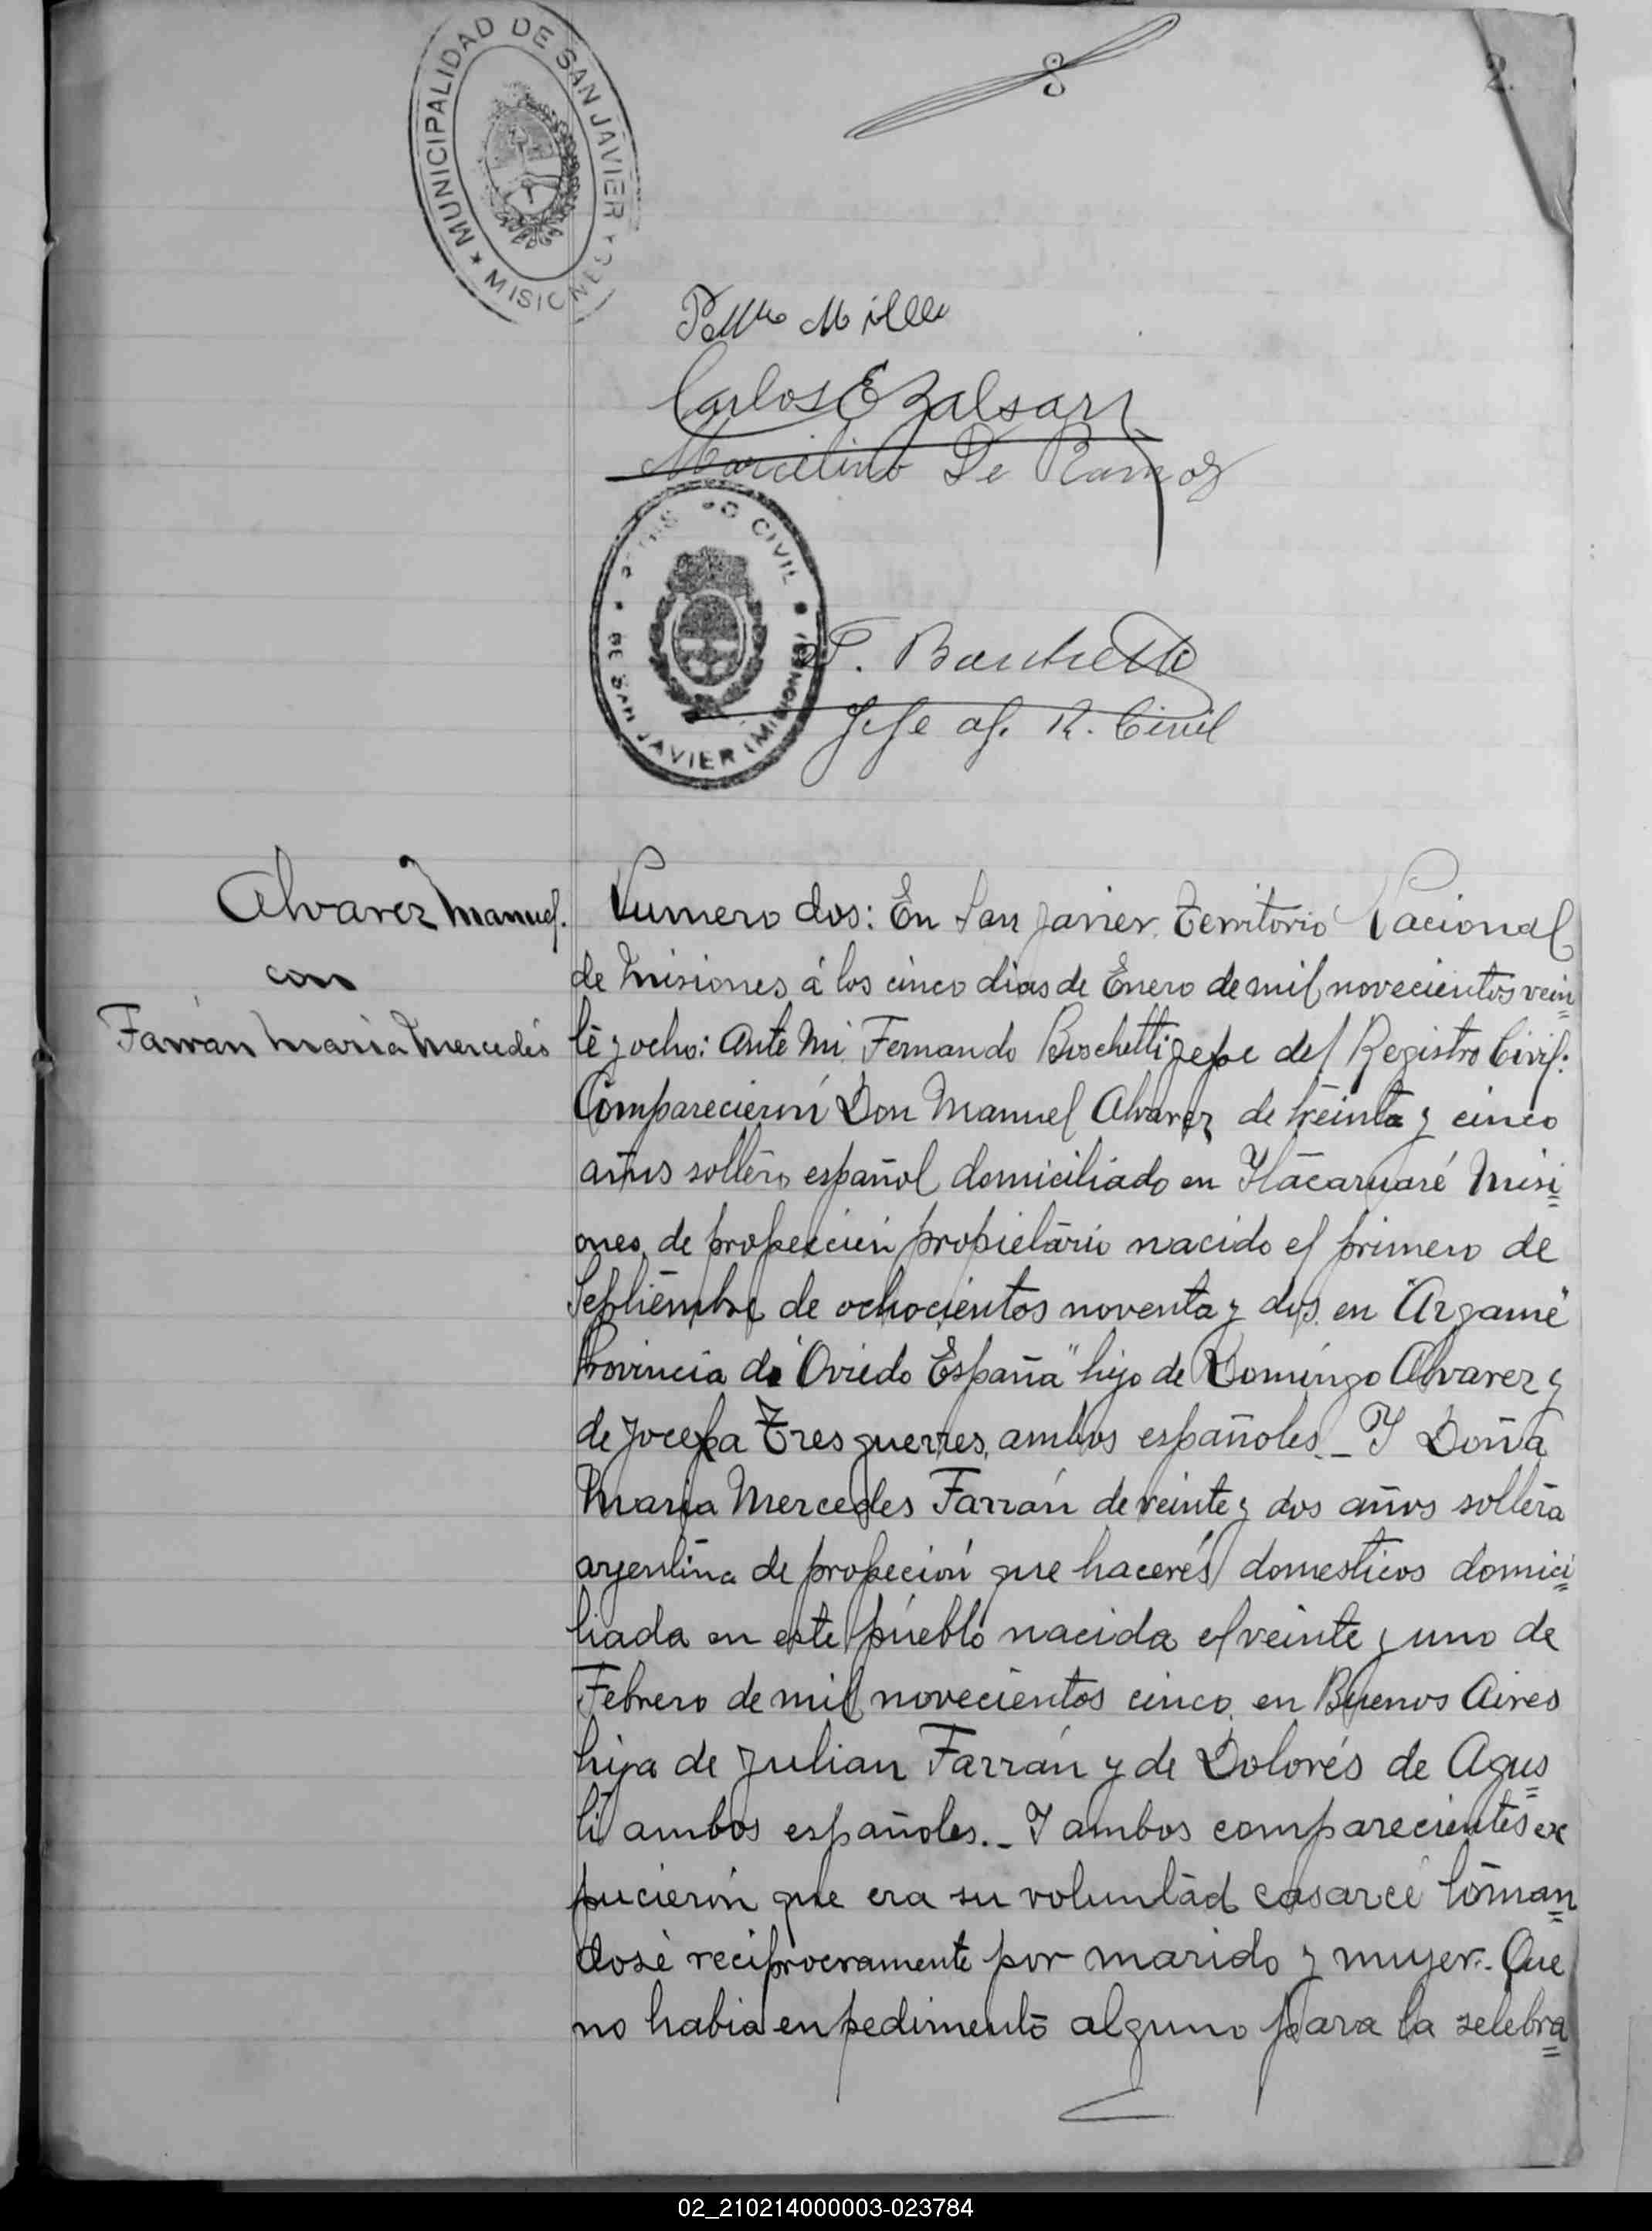 2.
MUNICIPALIDAD DE SAN JAVIER
MISIONES
Carlos E Zalsar
Marcelino De Ramos
CIVIL
DE SAN JAVIER
F. Boschetti
Jefe of. R. Civil
Alvarez Manuel.
con
Farrán Maria Mercedés
Numero dos: En San Javier Territorio Nacional
de Misiones á los cinco dias de Enero de mil novecientos vein=
te y ocho: Ante Mi Fernando Boschetti Jefe del Registro Civil:
Comparecierón Don Manuel Alvarez de treinta y cinco
años soltero español domiciliado en Itacaruaré Misi=
ones de profección propietario nacido el primero de
Septiembre de ochocientos noventa y dos en "Argame"
Provincia de "Oviedo España" hijo de Domingo Alvarez y
de Jocefa Tresguerres ambos españoles._ Y Doña
Maria Mercedes Farrán de veinte y dos años soltera
argentina de profeción que hacerés domesticos domici=
liada en este pueblo nacida el veinte y uno de
Febrero de mil novecientos cinco en Buenos Aires
hija de Julian Farrán y de Dolorés de Agus=
ti ambos españoles._ Y ambos comparecientes ex
pucierón que era su voluntad casarce tóman=
dosé reciprocramente por marido y mujer.- Que
no habia enpedimento alguno para la selebra=
02_210214000003-023784